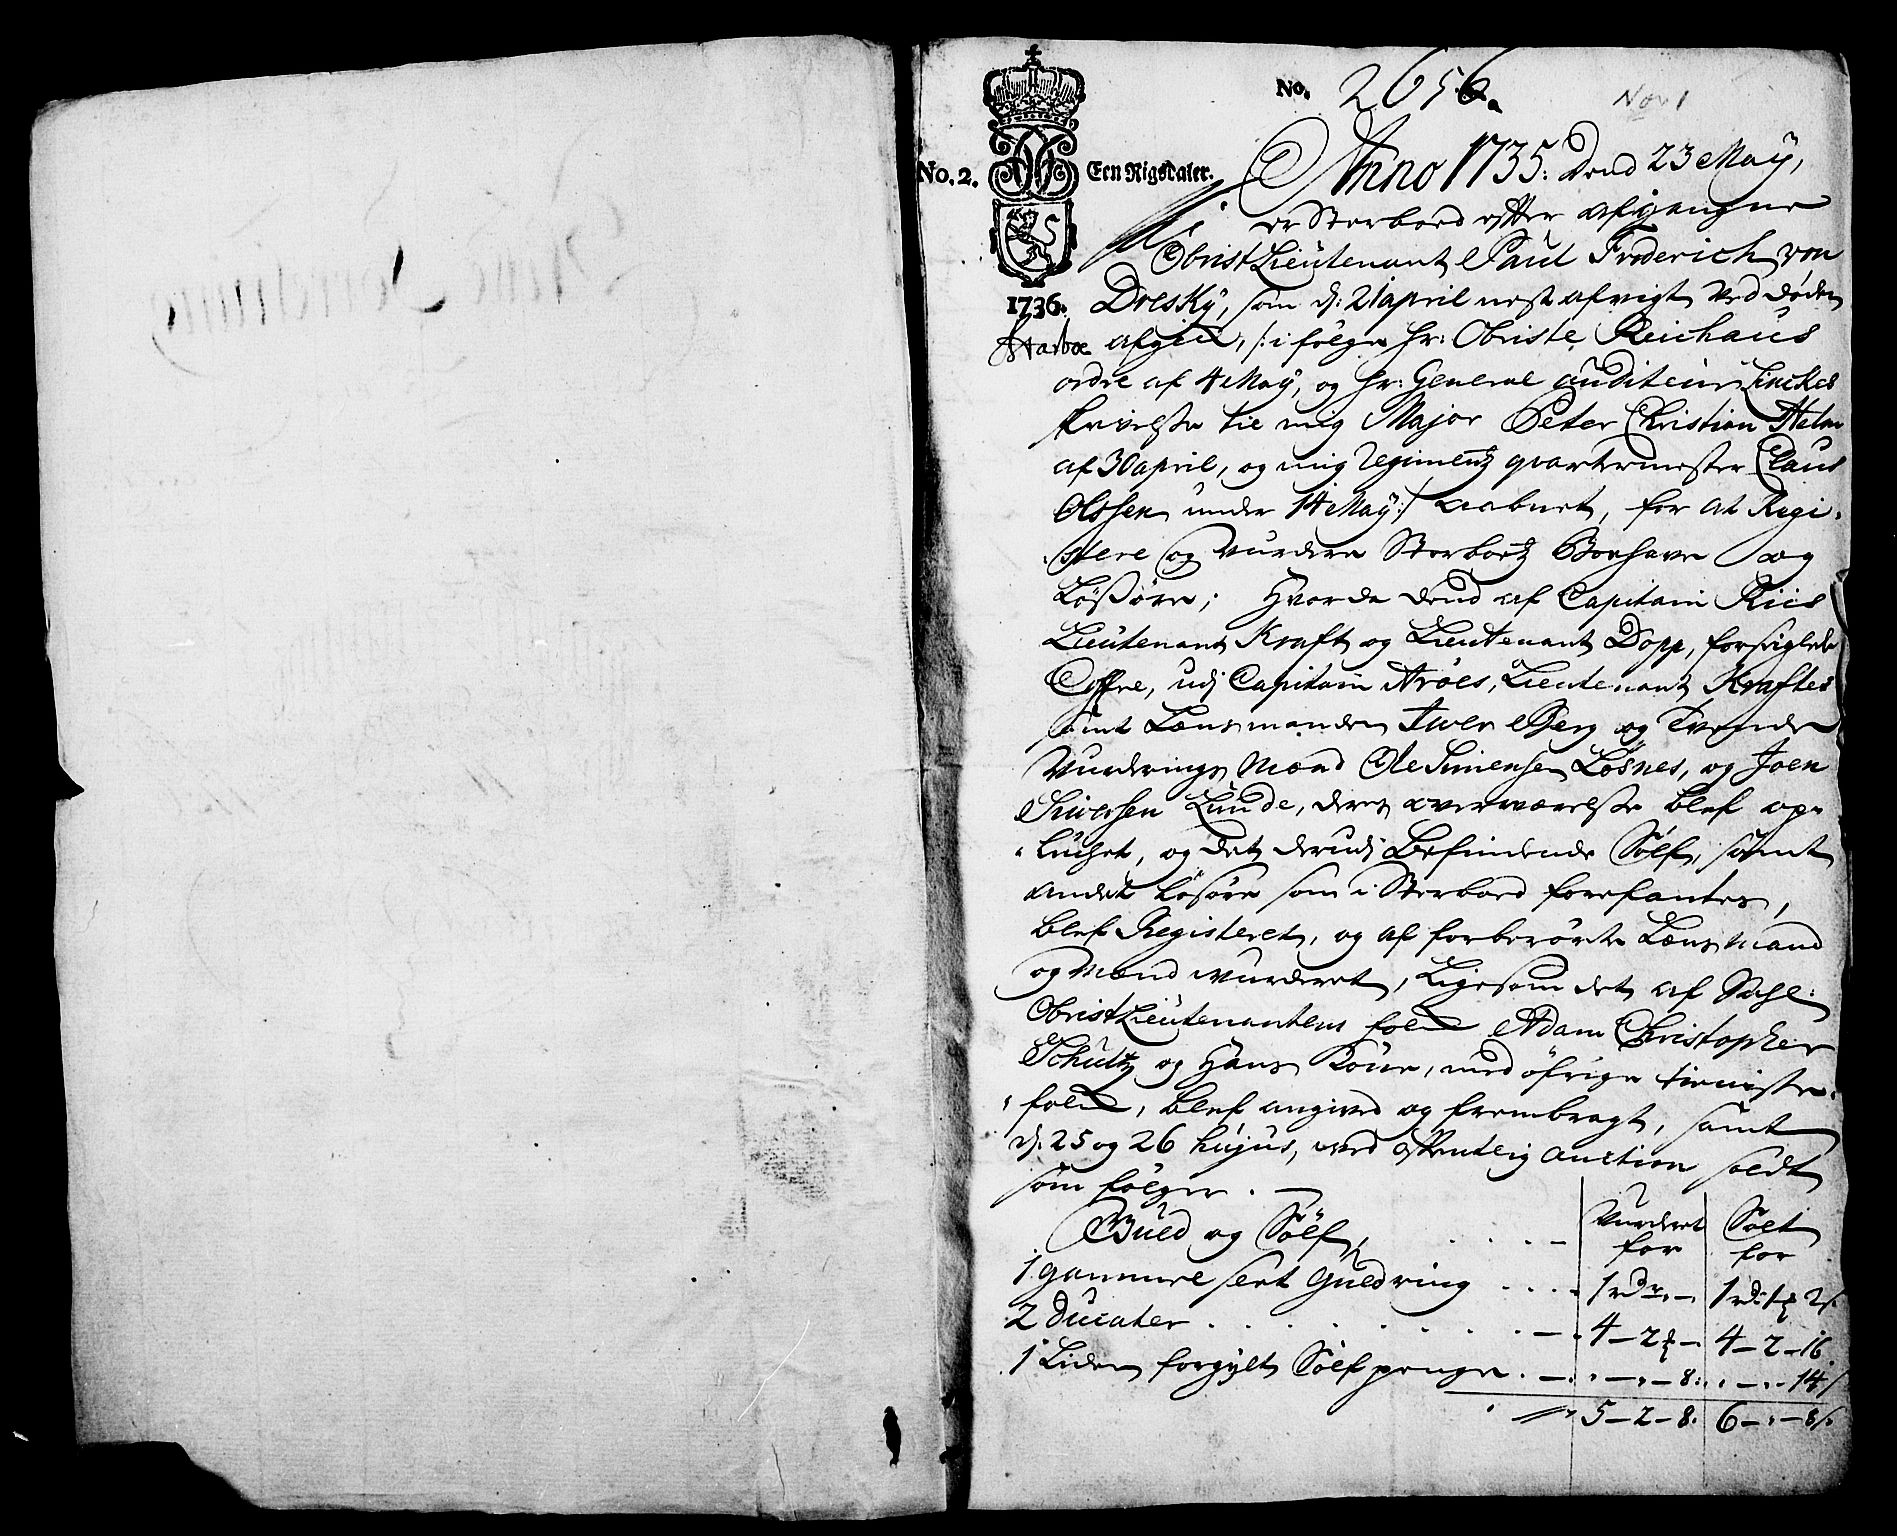 No. 2656a
Nov 1
No. 2. Een Rigsdaler.
1736.
Anno 1735: Dend 23 May,
er Sterboed efter afgangne
Obrist Lieutenant Paul Frederich von
Dresky, som d: 21 april nest afvigt ved døden
afgik, /: i følge Hr: Obriste Reichaus
ordre af 4 May, og Hr: General auditeur Linckes
skrivelse til mig Major Peter Christian Helm
af 30 april, og mig Regimentz quartermester Claus
Olssen under 14 May :/ aabnet, for at Regi-
stere og vurdere Sterboetz Boehave og
Løsøre; Hvor da dend af Capitain Ries
Lieutenant Kraft og Lieutenant Dopp, forseiglede
Coffre, udj Capitain Arøes, Lieutenant Kraftes
samt Lænsmanden Iwer Berg og Tvende
Vurderings Mænd Ole Simensen Løsnes, og Joen
Siversen Lunde, deres overværelse blef op-
lucket, og det derudj Befindende Sølf, samt
andet Løsøre som i Sterboed forefantes,
blef Registeret, og af forberørte Lænsmand
og Mænd vurderet, Ligesom det af Sahl:
Obrist Lieutenantens folk Adam Christopher
Schultz og Hans Röue, med øfrige tieniste-
folk, blef angived og frembragt, samt
d: 25 og 26 hujus, ved offentlig auction soldt
som følger. —
Vurderet for | Solt for
Guld og Sølf,
1 gammel slet Guldring .... 1 rdr „ — | 1 rd: 1 2 s.
2 Ducater ........ 4 — 2 — | 4 — 2 — 16
1 Liden forgylt Sølf penge . — „ — „ — 8: | „ — „ — 14 s
5 — 2 — 8. | 6 — „ — 8 s.